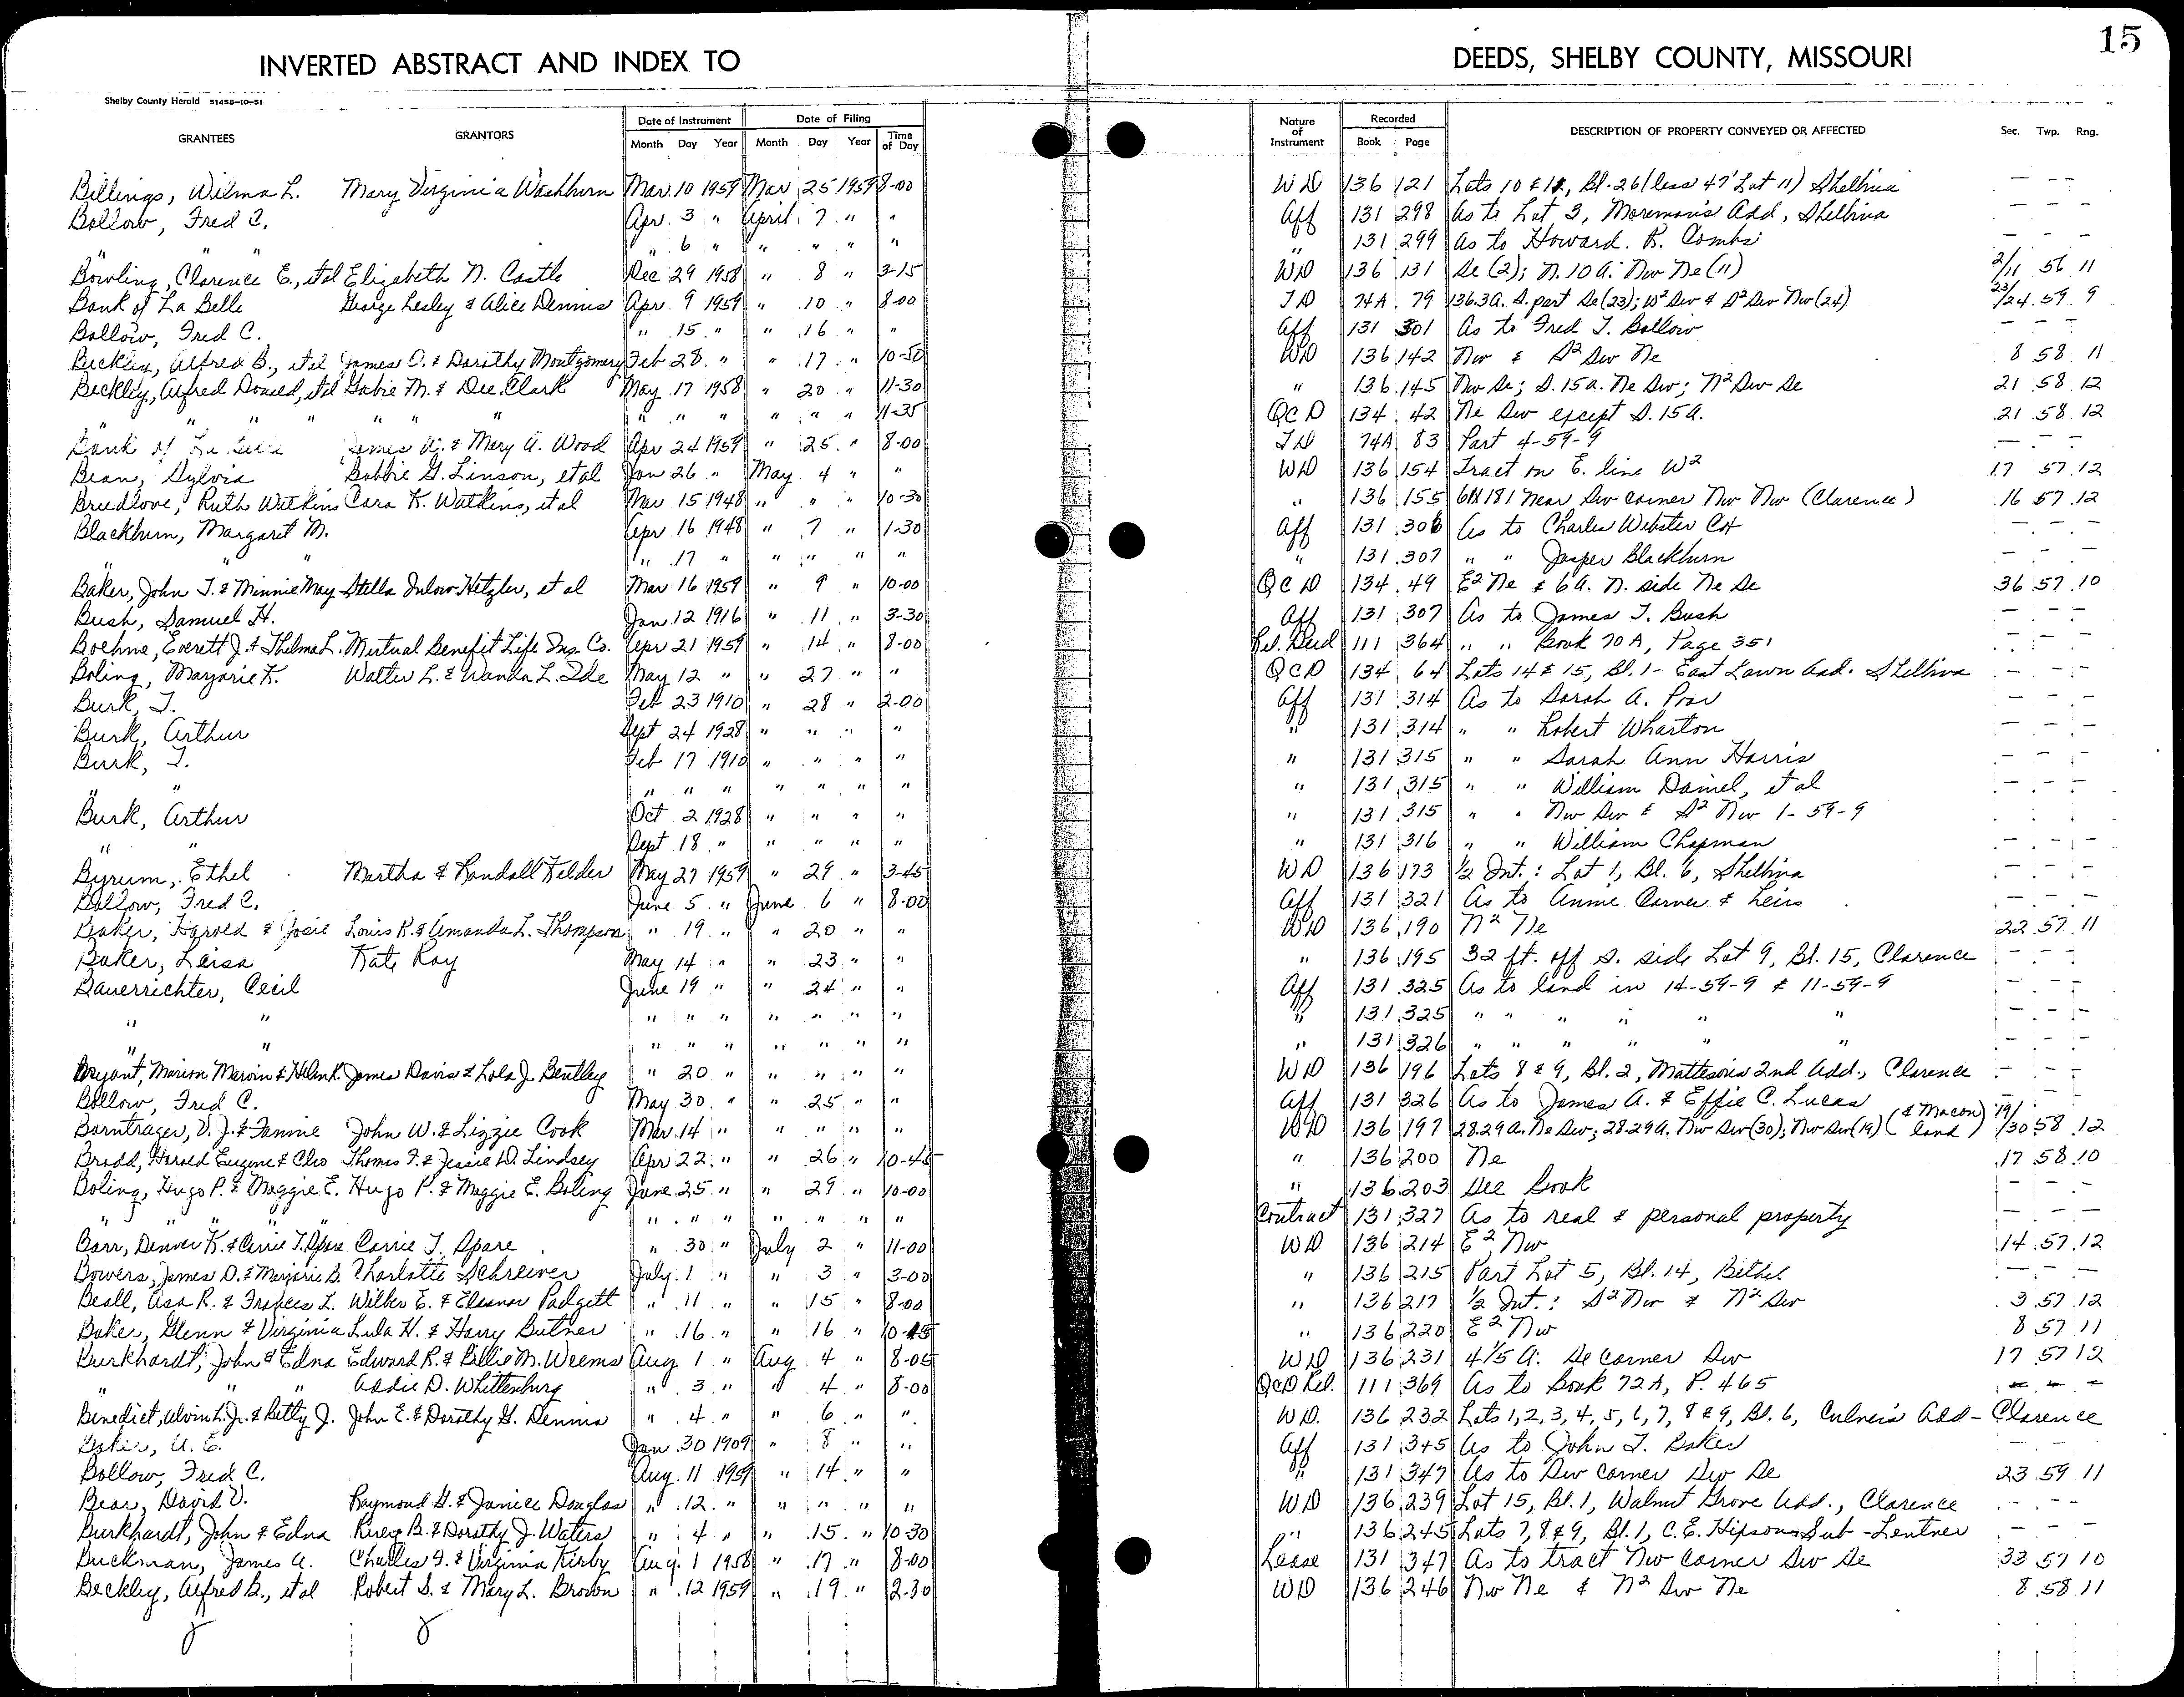 15
INVERTED ABSTRACT AND INDEX TO DEEDS, SHELBY COUNTY, MISSOURI
Shelby County Herald 51458-10-51
GRANTEES GRANTORS Date of Instrument Month Day Year Date of Filing Month Day Year Time of Day Nature of Instrument Recorded Book Page DESCRIPTION OF PROPERTY CONVEYED OR AFFECTED Sec. Twp. Rng.
Billings, Wilma L. Mary Virginia Washburn Mar. 10 1959 Mar 25 1959 8-00 WD 136 121 Lots 10 & 11, Bl. 26 (less 47' Lot 11) Shelbina - - -
Bollow, Fred C. Apr. 3 " April 7 " " Aff 131 298 As to Lot 3, Moreman's Add, Shelbina - - -
" " " 6 " " " " " " 131 299 As to Howard R. Combs - - -
Bowling, Clarence E., et al Elizabeth N. Castle Dec 29 1958 " 8 " 3-15 WD 136 131 Se (2); N. 10 A. Nw Ne (11) 2/11 56 11
Bank of La Belle George Lesley & Alice Dennis Apr. 9 1959 " 10 " 8-00 TD 74A 79 136.3 A. S. part Se (23); W² Sw & S² Sw Nw (24) 23/24 59 9
Bollow, Fred C. " 15 " " 16 " " Aff 131 301 As to Fred T. Bollow - - -
Beckley, Alfred B., et al James O. & Dorothy Montgomery Feb 28 " " 17 " 10-50 WD 136 142 Nw & S² Sw Ne 8 58 11
Beckley, Alfred Donald, et al Gabie M. & Dee Clark May 17 1958 " 20 " 11-30 " 136 145 Nw Se; S. 15 a. Ne Sw; N² Sw Se 21 58 12
" " " " " " " " " " " " " 11-35 QCD 134 42 Ne Sw except S. 15 A. 21 58 12
Bank of La Belle James W. & Mary A. Wood Apr 24 1959 " 25 " 8-00 TD 74A 83 Part 4-59-9 - - -
Bean, Sylvia Bobbie G. Linson, et al Jan 26 " May 4 " " WD 136 154 Tract on E. line W² 17 57 12
Breedlove, Ruth Watkins Cara K. Watkins, et al Mar 15 1948 " " " 10-30 " 136 155 61 X 181 Near Sw corner Nw Nw (Clarence) 16 57 12
Blackburn, Margaret M. Apr 16 1948 " 7 " 1-30 Aff 131 306 As to Charles Webster - - -
" " " 17 " " " " " " 131 307 " " Jasper Blackburn - - -
Baker, John T. & Minnie May Stella Inlow Hetzler, et al Mar 16 1959 " 9 " 10-00 QCD 134 49 E² Ne & 6 A. N. side Ne Se 36 57 10
Bush, Samuel H. Jan. 12 1916 " 11 " 3-30 Aff 131 307 As to James T. Bush - - -
Boehne, Everett J. & Thelma L. Mutual Benefit Life Ins. Co. Apr 21 1959 " 14 " 8-00 Rel. Deed 111 364 " " Book 70 A, Page 351 - - -
Boling, Marjorie K. Walter L. & Wanda L. Ide May 12 " " 27 " " QCD 134 64 Lots 14 & 15, Bl. 1 - East Lawn Add. Shelbina - - -
Burk, T. Feb 23 1910 " 28 " 2-00 Aff 131 314 As to Sarah A. Poor - - -
Burk, Arthur Sept 24 1928 " " " " " 131 314 " " Robert Wharton - - -
Burk, T. Feb 17 1910 " " " " " 131 315 " " Sarah Ann Harris - - -
" " " " " " " " " " 131 315 " " William Daniel, et al - - -
Burk, Arthur Oct 2 1928 " " " " " 131 315 " " Nw Sw & S² Nw 1-59-9
" " Sept 18 " " " " " " 131 316 " " William Chapman - - -
Byrum, Ethel Martha & Randall Felder May 27 1959 " 29 " 3-45 WD 136 173 ½ Int.: Lot 1, Bl. 6, Shelbina - - -
Bollow, Fred C. June 5 " June 6 " 8-00 Aff 131 321 As to Annie Carver & heirs
Baker, Harold & Josie Louis R. & Amanda L. Thompson " 19 " " 20 " " WD 136 190 N² Ne 22 57 11
Baker, Leisa Kate Ray May 14 " " 23 " " " 136 195 32 ft. off S. side Lot 9, Bl. 15, Clarence - - -
Bauerrichter, Cecil June 19 " " 24 " " Aff 131 325 As to land in 14-59-9 & 11-59-9 - - -
" " " " " " " " " " 131 325 " " " " " " - - -
" " " " " " " " " " 131 326 " " " " " " - - -
Bryant, Marion Marvin & Helen K. James Davis & Lola J. Bentley " 20 " " " " " WD 136 196 Lots 8 & 9, Bl. 2, Matteson's 2nd Add., Clarence - - -
Bollow, Fred C. May 30 " " 25 " " Aff 131 326 As to James A. & Effie C. Lucas - - -
Borntrager, V. J. & Fannie John W. & Lizzie Cook Mar. 14 " " " " " WD 136 197 28.29 A. Ne Sw; 28.29 A. Nw Sw (30); Nw Sw (19) (& Macon land) 19/30 58 12
Bradd, Harold Eugene & Cleo Thomas F. & Jessie D. Lindsey Apr 22 " " 26 " 10-45 " 136 200 Ne 17 58 10
Boling, Hugo P. & Maggie E. Hugo P. & Maggie E. Boling June 25 " " 29 " 10-00 " 136 203 See Book - - -
" " " " " " " " " " " Contract 131 327 As to real & personal property - - -
Barr, Denver K. & Carrie T. Spare Carrie T. Spare " 30 " July 2 " 11-00 WD 136 214 E² Nw 14 57 12
Bowers, James D. & Marjorie B. Charlotte Schreiver July 1 " " 3 " 3-00 " 136 215 Part Lot 5, Bl. 14, Bethel - - -
Beall, Asa R. & Frances L. Wilber E. & Eleanor Padgett " 11 " " 15 " 8-00 " 136 217 ½ Int.: S² Nw & N² Sw 3 57 12
Baker, Glenn & Virginia Lula H. & Harry Butner " 16 " " 16 " 10-45 " 136 220 E² Nw 8 57 11
Burkhardt, John & Edna Edward R. & Billie M. Weems Aug 1 " Aug 4 " 8-05 WD 136 231 4 1/5 A. Se corner Sw 17 57 12
" " " Addie D. Whittenburg " 3 " " 4 " 8-00 QCD Rel. 111 369 As to Book 72A, P. 465 - - -
Benedict, Alvin L. Jr. & Betty J. John E. & Dorothy G. Dennis " 4 " " 6 " " WD. 136 232 Lots 1, 2, 3, 4, 5, 6, 7, 8 & 9, Bl. 6, Culver's Add - Clarence
Baker, U. E. Jan. 30 1909 " 8 " " Aff 131 345 As to John T. Baker - - -
Bollow, Fred C. Aug. 11 1959 " 14 " " " 131 347 As to Sw corner Sw Se 23 59 11
Bear, David V. Raymond G. & Janice Douglas " 12 " " " " " WD 136 239 Lot 15, Bl. 1, Walnut Grove Add., Clarence - - -
Burkhardt, John & Edna B. & Dorothy J. Waters " 4 " " 15 " 10-30 " 136 245 Lots 7, 8 & 9, Bl. 1, C. E. Hipsons Sub - Lentner - - -
Buckman, James A. Charles F. & Virginia Kirby Aug. 1 1958 " 17 " 8-00 Lease 131 347 As to tract Nw corner Sw Se 33 57 10
Beckley, Alfred B., et al Robert S. & Mary L. Brown " 12 1959 " 19 " 2-30 WD 136 246 Nw Ne & N² Sw Ne 8 58 11